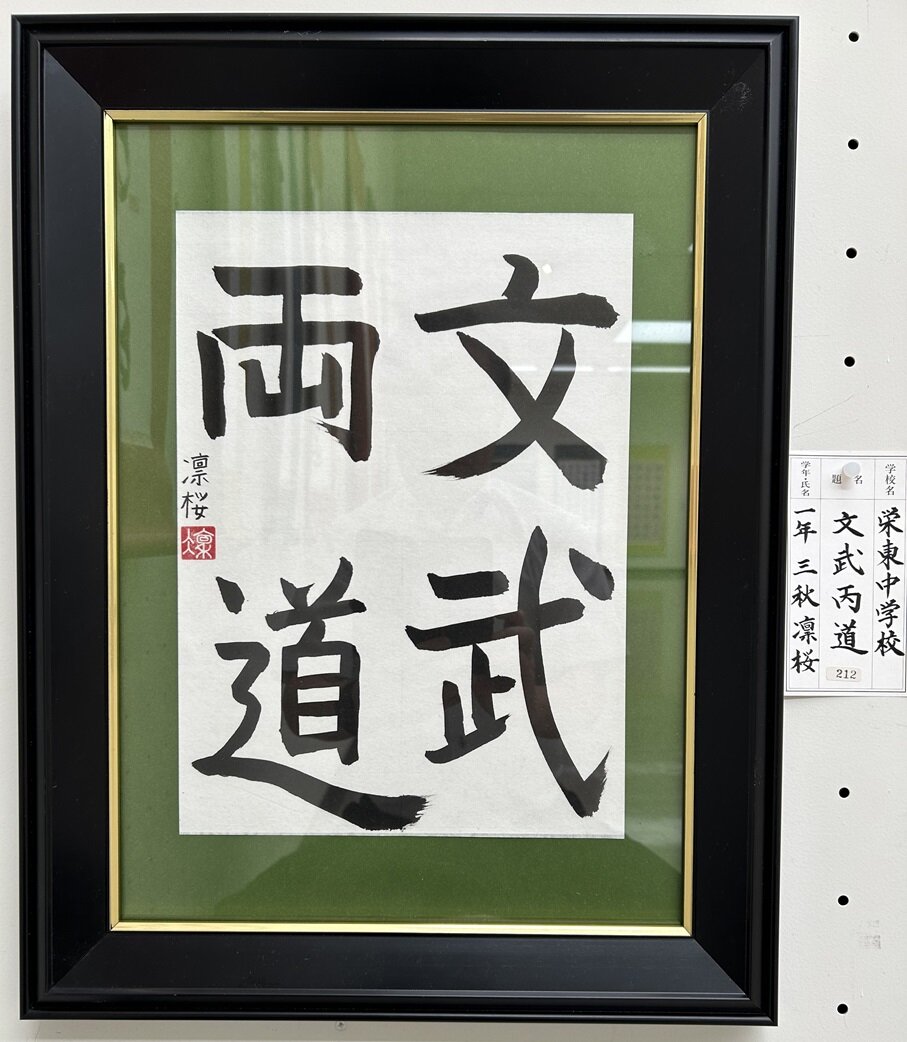 文武
両道
凛桜
凛
学校名
栄東中学校
題名
文武両道
212
学年・氏名
一年 三秋凛桜